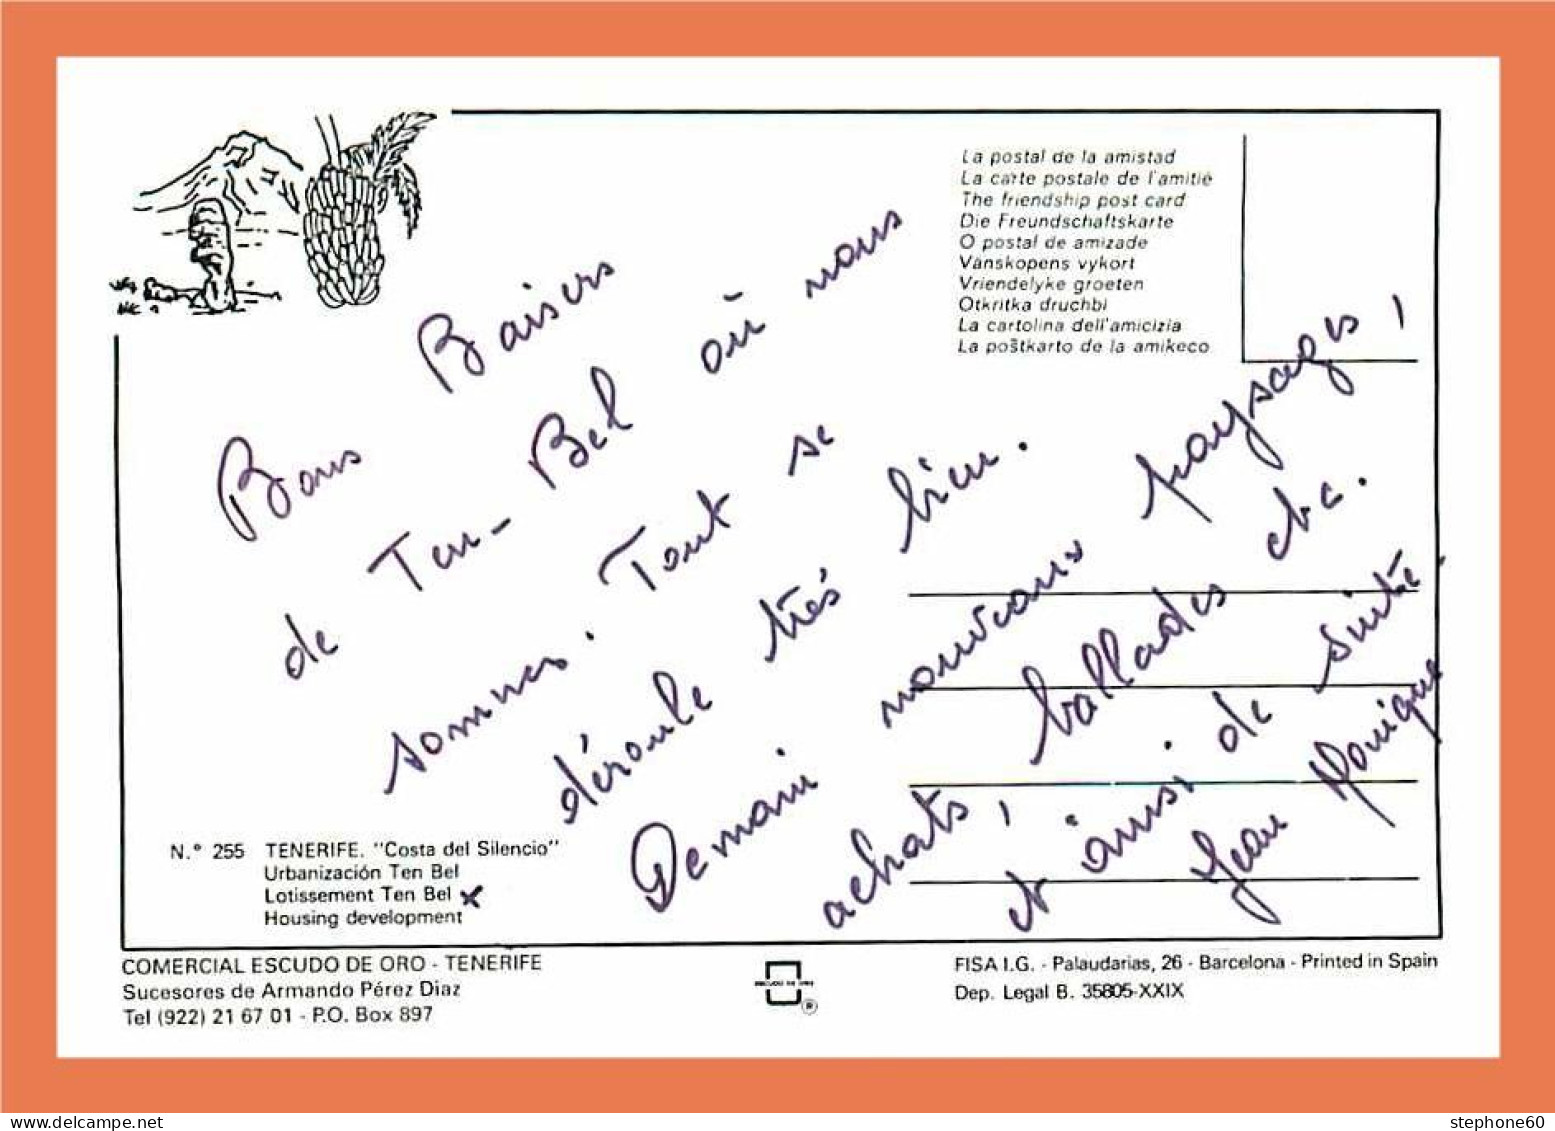 La postal de la amistad
La carte postale de l'amitié
The friendship post card
Die Freundschaftskarte
O postal de amizade
Vanskopens vykort
Vriendelyke groeten
Otkritka druchbi
La cartolina dell'amicizia
La poŝtkarto de la amikeco
Bons Baisers
de Ten-Bel où nous
sommes. Tout se
déroule très bien.
Demain nouveaux paysages,
achats, ballades etc.
et ainsi de suite.
Jean Monique
N.° 255 TENERIFE. "Costa del Silencio"
Urbanización Ten Bel
Lotissement Ten Bel x
Housing development
COMERCIAL ESCUDO DE ORO - TENERIFE
Sucesores de Armando Pérez Diaz
Tel (922) 21 67 01 - P.O. Box 897
ESCUDO DE ORO
®
FISA I.G. - Palaudarias, 26 - Barcelona - Printed in Spain
Dep. Legal B. 35805-XXIX
delcampe.net
stephone60